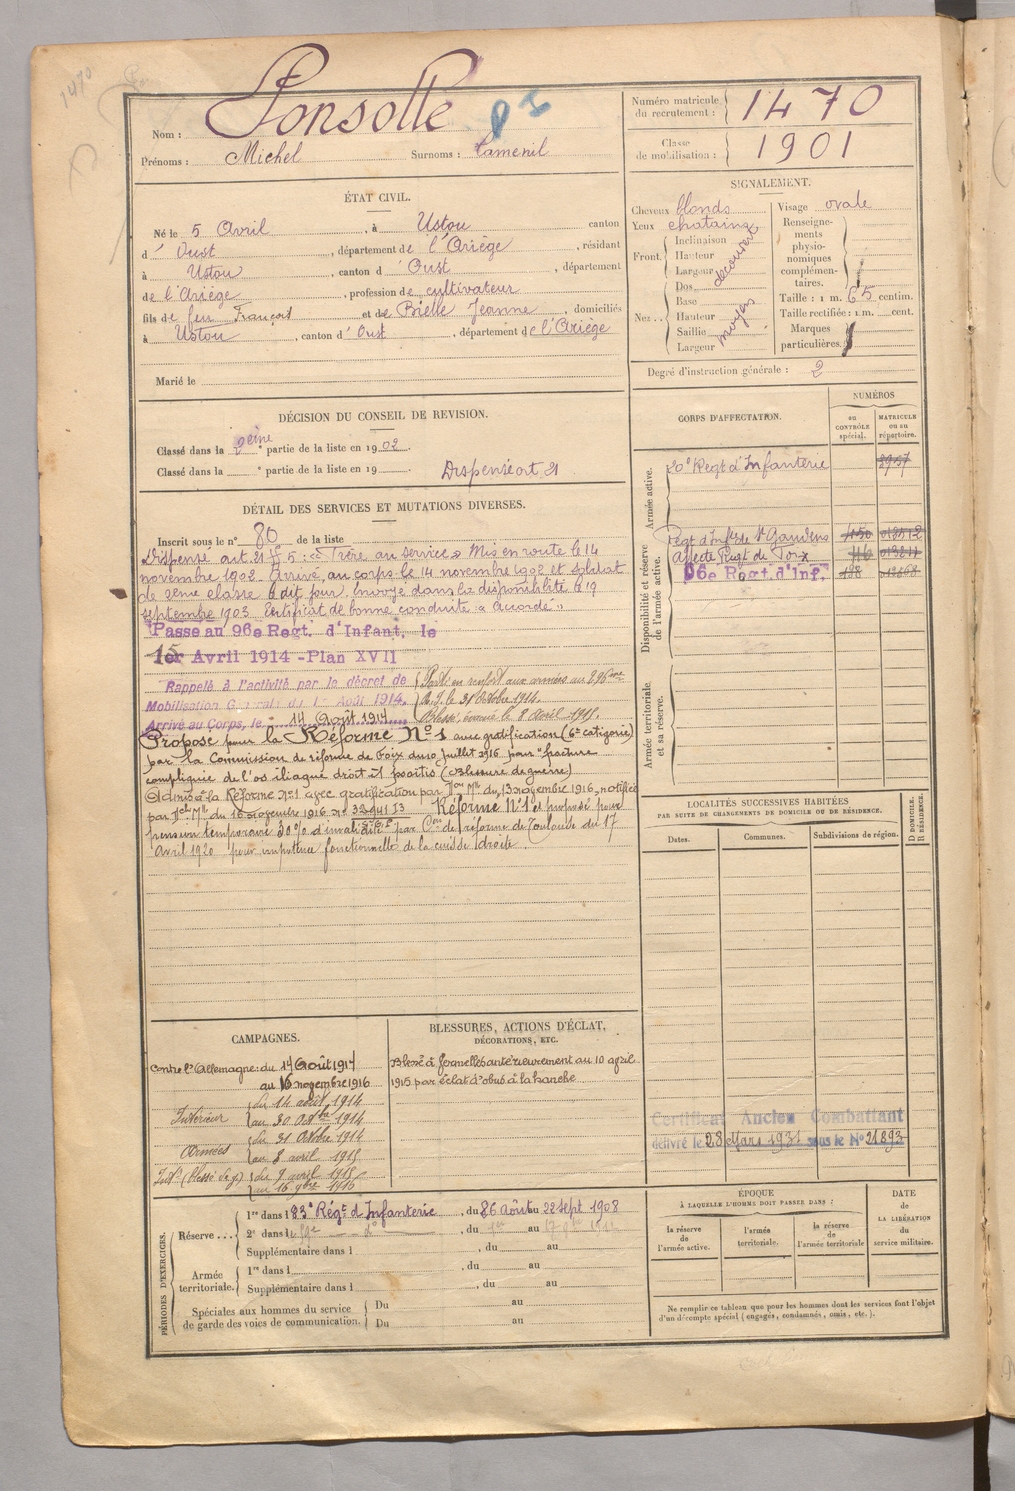 1470
Nom : Ponsolle
Prénoms : Michel Surnoms : Camenil
Numéro matricule du recrutement : 1470
Classe de mobilisation : 1901
ÉTAT CIVIL.
Né le 5 Avril , à Ustou canton
d' Oust , département de l'Ariège , résidant
à Ustou , canton d' Oust , département
de l'Ariège , profession de cultivateur
fils de feu François et de Brielle Jeanne , domiciliés
à Ustou , canton d' Oust , département de l'Ariège
Marié le
SIGNALEMENT.
Cheveux blonds
Yeux chatains
Front. Inclinaison Hauteur Largeur découvert
Nez.. Dos Base Hauteur Saillie Largeur moyen
Visage ovale
Renseignements physionomiques complémentaires.
Taille : 1 m. 65 centim.
Taille rectifiée : 1 m. cent.
Marques particulières.
Degré d'instruction générale : 2
DÉCISION DU CONSEIL DE REVISION.
Classé dans la 2eme partie de la liste en 1902
Classé dans la ° partie de la liste en 19
Dispensé art. 21
DÉTAIL DES SERVICES ET MUTATIONS DIVERSES.
Inscrit sous le n° 80 de la liste
Dispensé art. 21 § 5 : « Frère au service » Mis en route le 14
novembre 1902. Arrivé au corps le 14 novembre 1902 et soldat
de 2eme classe le dit jour. Envoyé dans la disponibilité le 19
septembre 1903. Certificat de bonne conduite « Accordé »
Passé au 96e Regt. d'Infant. le
1er Avril 1914 - Plan XVII
Rappelé à l'activité par le décret de
Mobilisation Générale du 1er Août 1914.
Arrivé au Corps, le 14 Août 1914
Parti en renfort aux armées au 296eme
R.I. le 31 Octobre 1914.
Blessé, évacué le 8 Avril 1915.
Proposé pour la Réforme N° 1 avec gratification (6e catégorie)
par la Commission de réforme de Foix du 10 juillet 1916 pour "fracture
compliquée de l'os iliaque droit et psoïtis (Blessure de guerre)
Admis à la Réforme N° 1 avec gratification par Don Mlle du 13 novembre 1916, notifiée
par Mlle du 16 novembre 1916 N° 32941 I3 Réforme N° 1 et proposé pour
pension temporaire 30% d'invalidité par Con de réforme de Toulouse du 17
Avril 1920 pour impotence fonctionnelle de la cuisse droite
CORPS D'AFFECTATION.
NUMÉROS
au CONTRÔLE spécial.
MATRICULE ou au répertoire.
Armée active.
20e Regt d'Infanterie 2957
Disponibilité et réserve de l'armée active.
Regt d'Infie de St Gaudens
Affecté Regt de Foix
96e Regt. d'Inf.
Armée territoriale et sa réserve.
LOCALITÉS SUCCESSIVES HABITÉES
PAR SUITE DE CHANGEMENTS DE DOMICILE OU DE RÉSIDENCE.
Dates. Communes. Subdivisions de région.
D DOMICILE.
R RÉSIDENCE.
CAMPAGNES.
Contre l'Allemagne : du 14 Août 1914
au 16 novembre 1916
Intérieur du 14 août 1914
au 30 Octbre 1914
Armées du 31 Octobre 1914
au 8 avril 1915
Intr (blessé de g.) du 9 avril 1915
au 16 9bre 1916
BLESSURES, ACTIONS D'ÉCLAT,
DÉCORATIONS, ETC.
Blessé à Vermelles antérieurement au 10 avril
1915 par éclat d'obus à la hanche
Certificat Ancien Combattant
délivré le 28 Mars 1931 sous le N° 21893
PÉRIODES D'EXERCICES.
Réserve ....
1re dans le 83e Régt d'Infanterie , du 26 Août au 22 sept 1908
2e dans le , du 1er au
Supplémentaire dans l , du au
Armée territoriale.
1re dans l , du au
Supplémentaire dans l , du au
Spéciales aux hommes du service de garde des voies de communication.
Du au
Du au
ÉPOQUE
À LAQUELLE L'HOMME DOIT PASSER DANS :
la réserve de l'armée active. l'armée territoriale. la réserve de l'armée territoriale
DATE
de
LA LIBÉRATION
du
service militaire.
Ne remplir ce tableau que pour les hommes dont les services font l'objet
d'un décompte spécial (engagés, condamnés, omis, etc.).